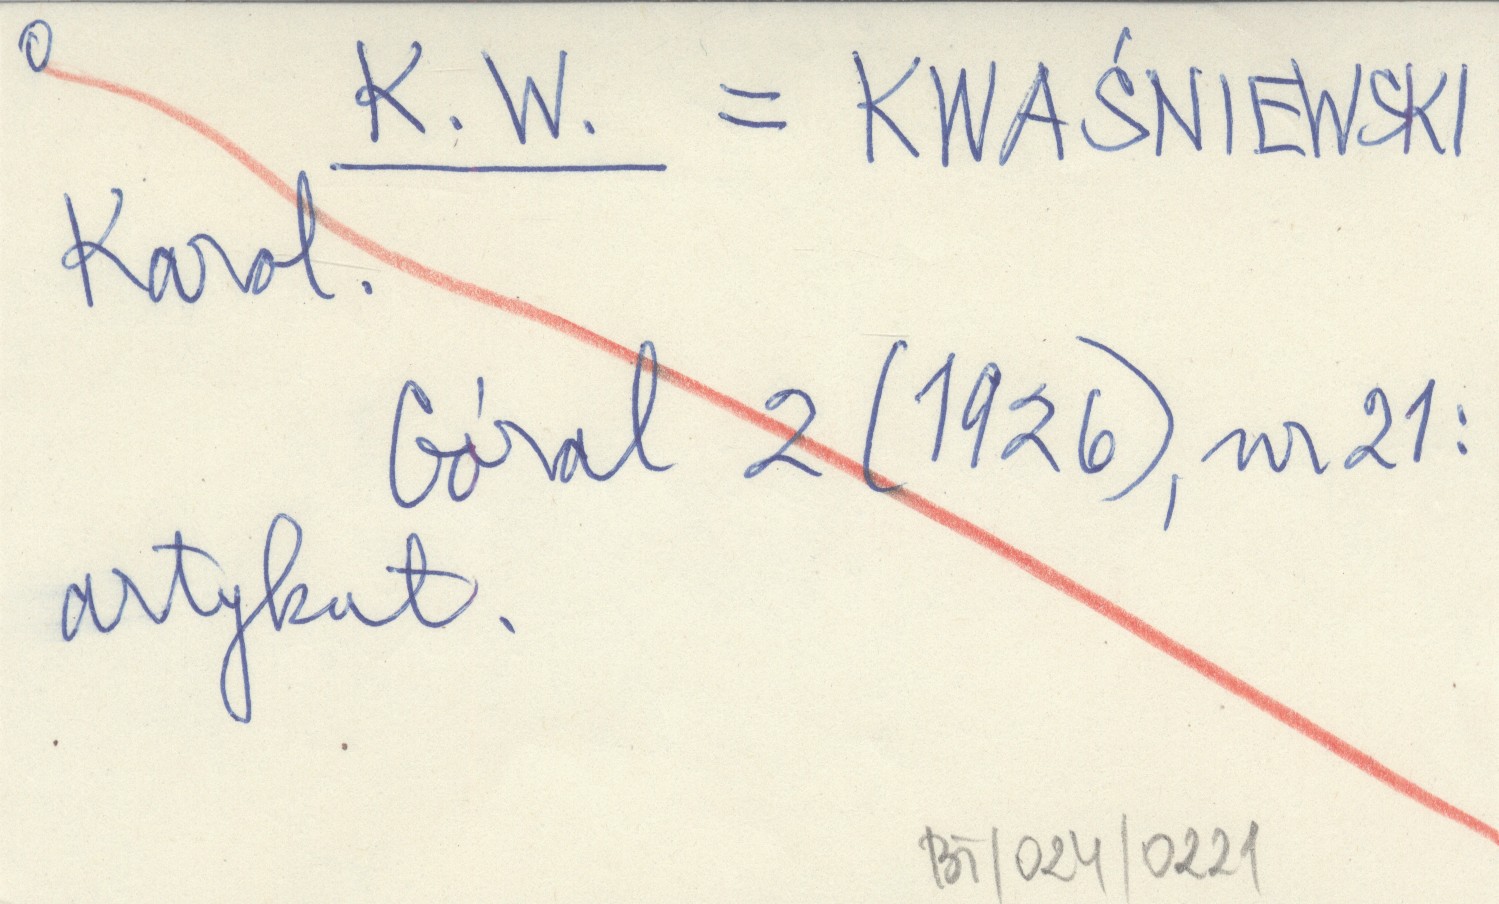 O
K. W. = KWAŚNIEWSKI
Karol.
Góral 2 (1926), nr 21:
artykuł.
BŁ/024/0221